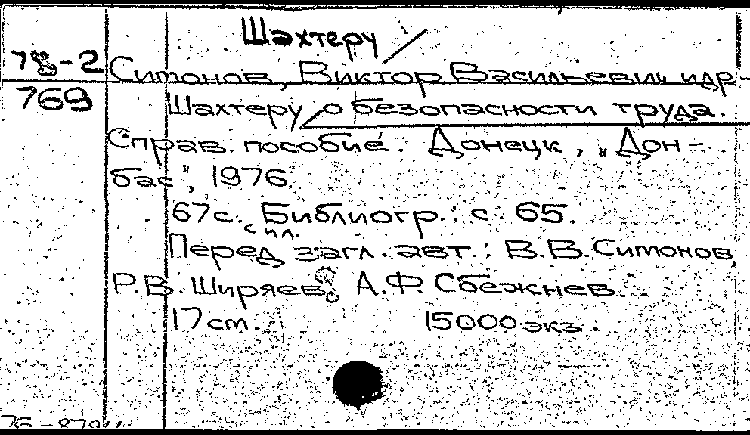 Шахтеру
78-2
Ситонов, Виктор Васильевич и др-
769
Шахтеру о безопасности труда.
Справ. пособие. Донецк, „Дон-
бас", 1976.
67с. с ил. Библиогр.: с. 65.
Перед загл. авт.: В.В. Ситонов,
Р.В. Ширяев, А.Ф. Сбежнев.
17 cm. 15000 экз.